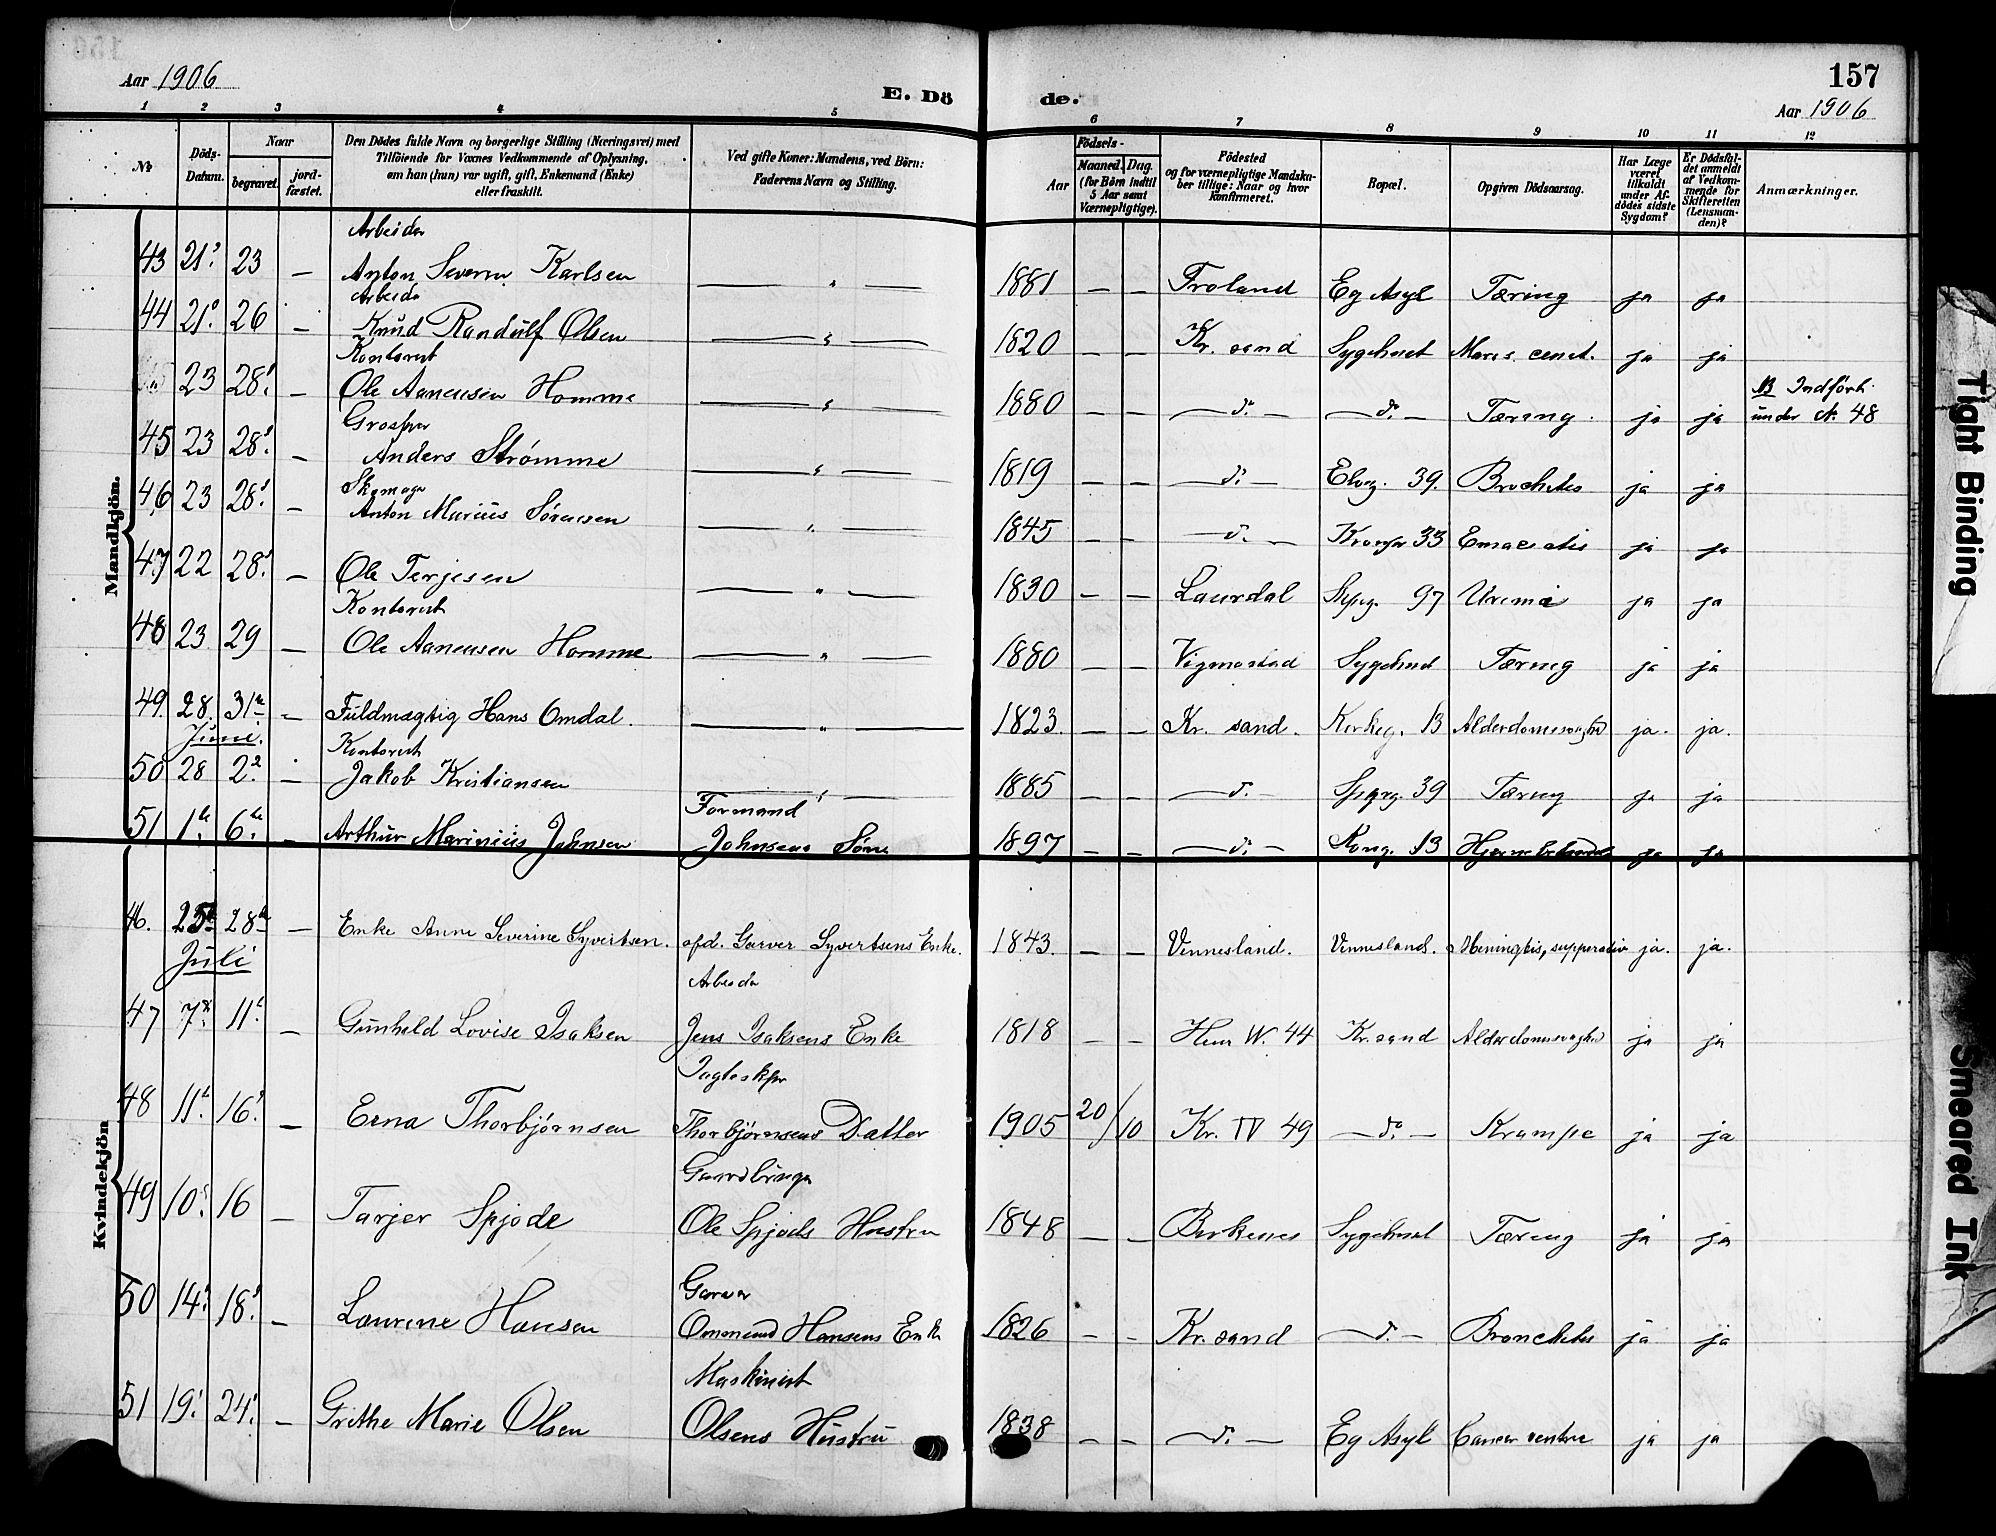 157
Aar 1906
E. Dö de.
Aar 1906
1 2 3 4 5 6 7 8 9 10 11 12
№
Döds-Datum.
Naar
begravet.
jord-fæstet.
Den Dödes fulde Navn og borgerlige Stilling (Næringsvei) med
Tilföiende for Voxnes Vedkommende af Oplysning,
om han (hun) var ugift, gift, Enkemand (Enke)
eller fraskilt.
Ved gifte Koner: Mandens, ved Börn:
Faderens Navn og Stilling.
Födsels-
Aar
Maaned. Dag.
(for Börn indtil
5 Aar samt
Værnepligtige).
Födested
og for værnepligtige Mandska-
ber tillige: Naar og hvor
konfirmeret.
Bopæl.
Opgiven Dödsaarsag.
Har Læge
været
tilkaldt
under Af-
dödes sidste
Sygdom?
Er Dödsfal-
det anmeldt
af Vedkom-
mende for
Skifteretten
(Lensman-
den)?
Anmærkninger.
Mandkjön.
Arbeider
43 21 23 — Anton Severin Karlsen — " — 1881 — — Froland Eg Asyl Tæring ja ja
Arbeider
44 21 26 — Knud Randulf Olsen — " — 1820 — — Kr. sand Sygehuset ja ja
Kontorist
23 28 — Ole Aanensen Homme — " — 1880 — — — d. — — d. — Tæring ja ja NB Indført under № 48
45 23 28 — Anders Strømme — " — 1819 — — — d. — Elveg. 39. ja ja
Skomager
46 23 28 — Anton Marius Sørensen — " — 1845 — — — d. — 33 ja ja
47 22 28 — Ole Terjesen — " — 1830 — — Laurdal 97 Uremi ja ja
Kontorist
48 23 29 — Ole Aanensen Homme — " — 1880 — — Vigmostad Sygehuset Tæring ja ja
49. 28. 31te — Fuldmægtig Hans Omdal. — " — 1823. — — Kr. sand. Kirkeg. 13 Alderdomssvaghed ja. ja.
Juni.
Kontorist
50 28 2 — Jakob Kristiansen — " — 1885 — — — d. — 39 Tæring ja ja
Formand
51 1te 6te — Arthur Marinius Johnsen Johnsens Søn 1897 — — — d. — Kong. 13 ja ja
Kvindekjön
46. 25de 28de — Enke Anne Severine Syvertsen. afd. Garver Syvertsens Enke. 1843. — — Vennesland. Vennesland. ja. ja.
Juli
Arbeider
47 7de 11te — Gunhild Lovise Isaksen Jens Isaksens Enke 1818 — — 44 Kr. sand Alderdomssvaghed ja ja
48 11te 16 — Erna Thorbjørnsen Thorbjørnsens Datter 1905 20/10 Kr. IV 49 — do — Krampe ja ja
Gaardbruger
49 10 16 — Tarjer Spjode Ole Spjods Hustru 1848 — — Birkenes Sygehuset Tæring ja ja
Garver
50 14 18 — Laurine Hansen Ommund Hansens Enke 1826 — — Kr. sand — d. — ja ja
Maskinist
51 19 24 — Grethe Marie Olsen Olsens Hustru 1838 — — — d. — Eg Asyl Cancer ventre ja ja
Tight Binding
Smeared Ink